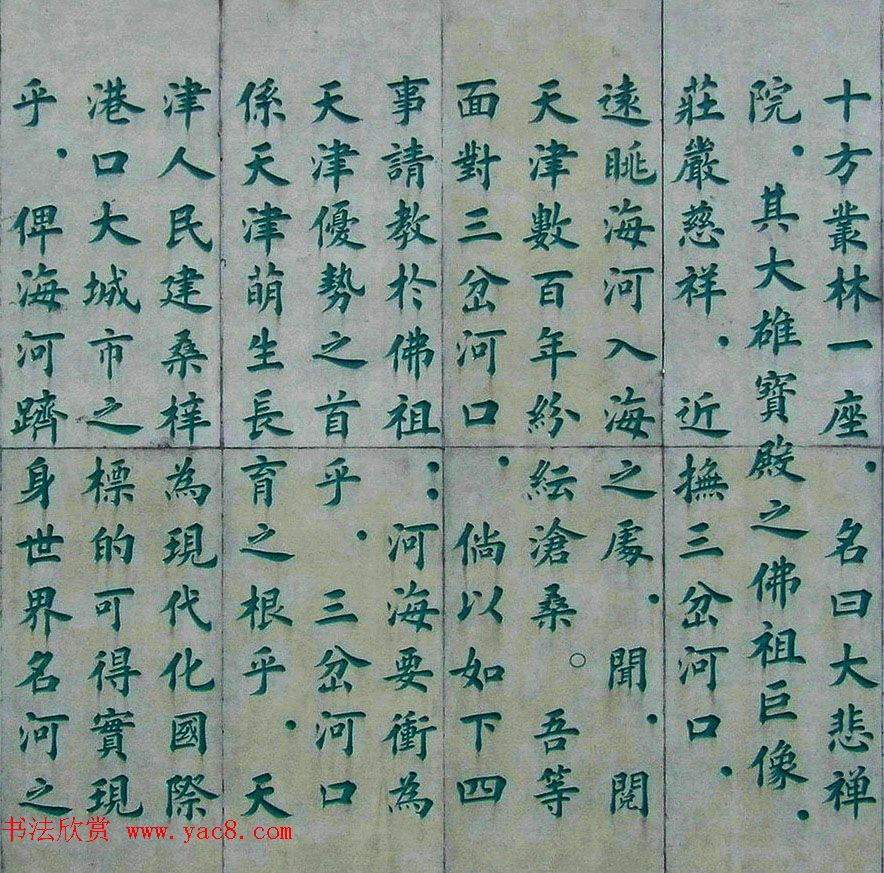 十方叢林一座．名曰大悲禅
院．其大雄寶殿之佛祖巨像．
莊嚴慈祥．近撫三岔河口．
遠眺海河入海之處．聞．閱
天津數百年紛紜滄桑。吾等
面對三岔河口．倘以如下四
事請教於佛祖：河海要衝為
天津優勢之首乎．三岔河口
係天津萌生長育之根乎．天
津人民建桑梓為現代化國際
港口大城市之標的可得實現
乎．俾海河躋身世界名河之
书法欣赏 www.yac8.com